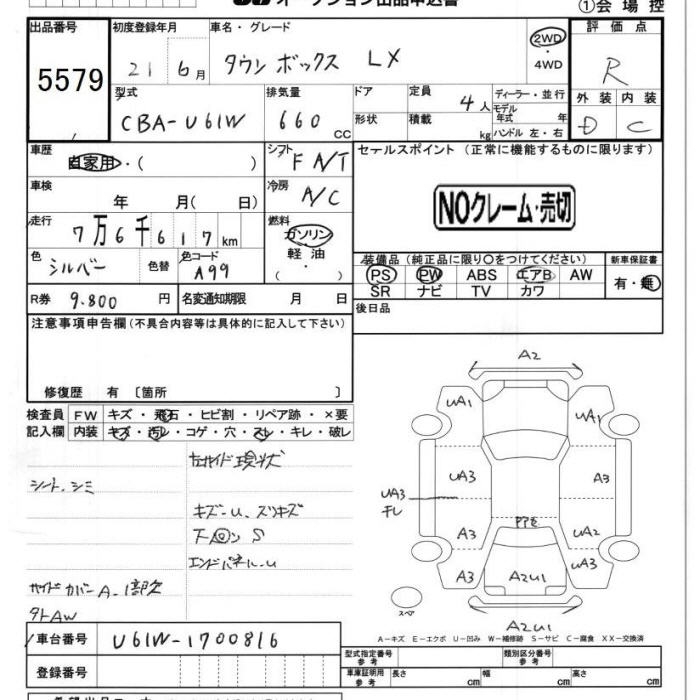 オークション出品申込書
①会場控
出品番号
5579
初度登録年月
21 6月
車名・グレード
タウンボックス LX
2WD・4WD
評価点
R
型式
CBA-U61W
排気量
660 CC
ドア
形状
定員
4人
積載
kg
ディーラー・並行
モデル年式 年
ハンドル 左・右
外装 内装
D C
車歴
自家用・( )
シフト
F A/T
セールスポイント(正常に機能するものに限ります)
車検
年 月( 日)
冷房
A/C
NOクレーム・売切
走行
7万6千617km
燃料
ガソリン
軽油・
( )
色
シルバー
色替
色コード
A99
装備品(純正品に限り○をつけてください)
PS PW ABS エアB AW
SR ナビ TV カワ
新車保証書
有・無
R券 9.800円
名変通知期限 月 日
後日品
注意事項申告欄(不具合内容等は具体的に記入して下さい)
修復歴 有 〔箇所 〕
検査員記入欄
FW キズ・飛石・ヒビ割・リペア跡・×要
内装 キズ・汚レ・コゲ・穴・スレ・キレ・破レ
現状
シート、シミ
キズ-u、スリキズ
下回りS
エンドパネル-u
サイドカバーA、1部欠
タトAW
A2
uA1 uA1
uA3 A3
uA3
干レ
A3 uA2
A3 uA3
A2u1
スペア
A2u1
A-キズ E-エクボ U-凹み W-補修跡 S-サビ C-腐食 XX-交換済
車台番号
U61W-1700816
登録番号
型式指定番号 参考
類別区分番号 参考
車庫証明用 参考
長さ cm 幅 cm 高さ cm